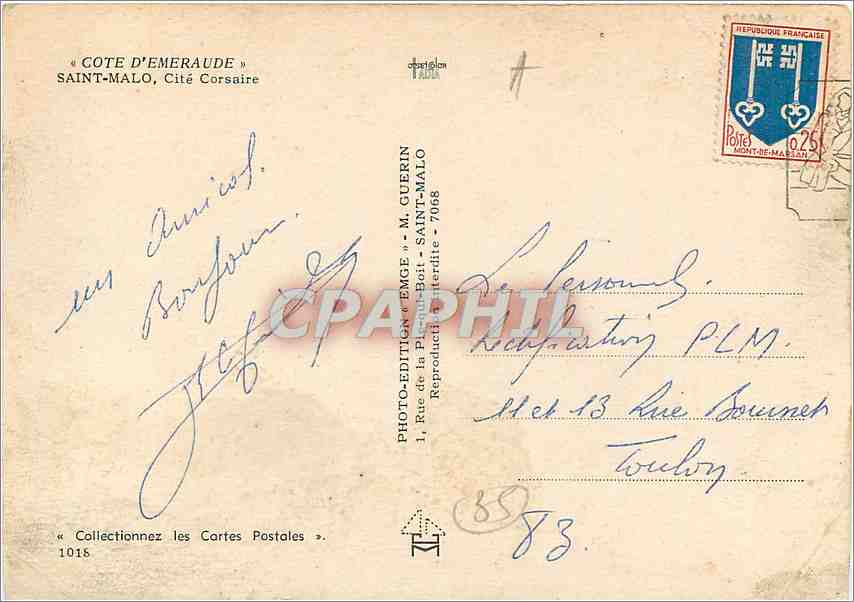 « COTE D'EMERAUDE »
SAINT-MALO, Cité Corsaire
un Amical
Bonjour.
« Collectionnez les Cartes Postales ».
1018
PHOTO-EDITION « EMGE » - M. GUERIN
1, Rue de la Pie-qui-Boit - SAINT-MALO
Reproduction interdite - 7068
REPUBLIQUE FRANÇAISE
POSTES 0,25
MONT-DE-MARSAN
CPAPHIL
Le Personnel
Rectification PLM
11 et 13 Rue
Toulon
35
83.